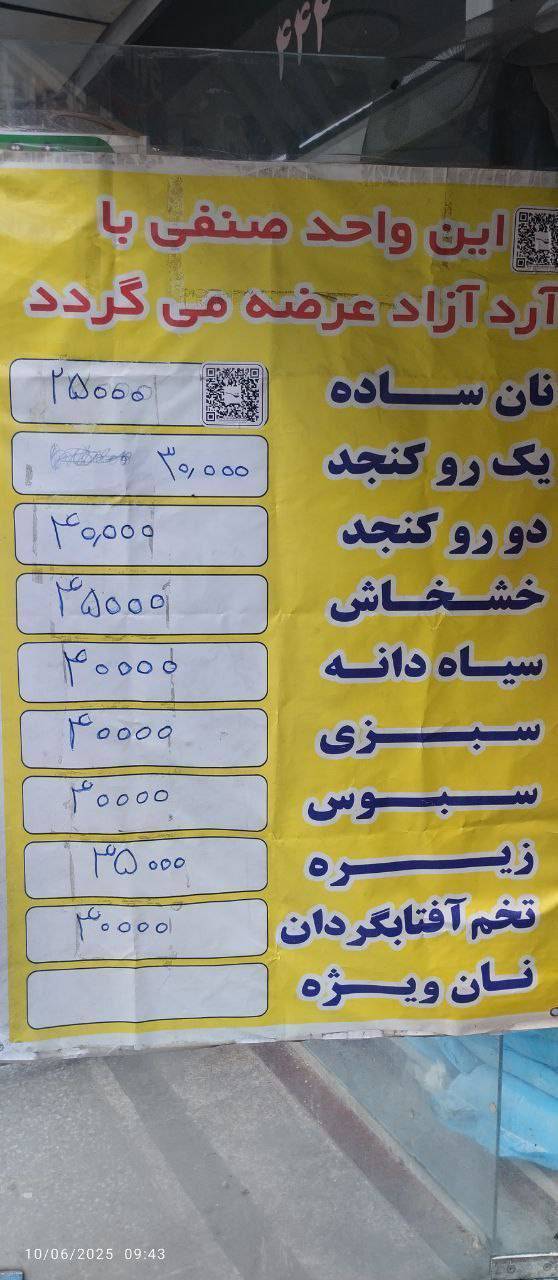 ۴۴۲
این واحد صنفی با
آرد آزاد عرضه می گردد
نان ساده ۲۵۰۰۰
یک رو کنجد ۳۰,۰۰۰
دو رو کنجد ۴۰,۰۰۰
خشخاش ۴۵۰۰۰
سیاه دانه ۴۰۰۰۰
سبزی ۴۰۰۰۰
سبوس ۴۰۰۰۰
زیره ۴۵۰۰۰
تخم آفتابگردان ۴۰۰۰۰
نان ویژه
10/06/2025 09:43